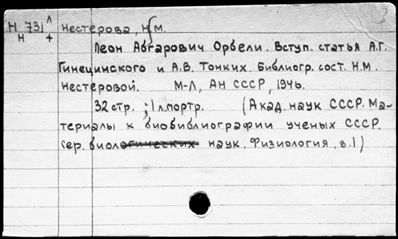 Н 731 л Нестерова, Н.М.
Н +
Леон Абгарович Орбели. Вступ. статья А.Г.
Гинецинского и А.В. Тонких. Библиогр. сост. Н.М.
Нестеровой. М-Л, АН СССР, 1946.
32 стр.; 1 л. портр. (Акад. наук СССР. Ма-
териалы к биобиблиографии ученых СССР.
Сер. биологических наук. Физиология, в.1)